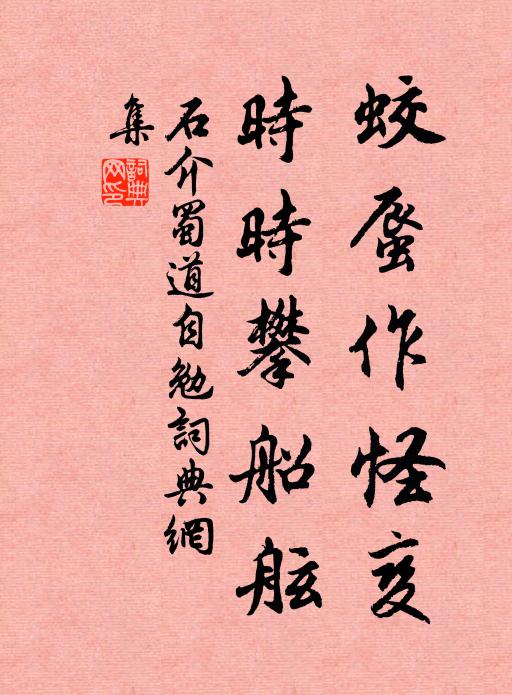 蛟蜃作怪变
時時攀船舷
石介蜀道自勉詞典網
集
詞典網印